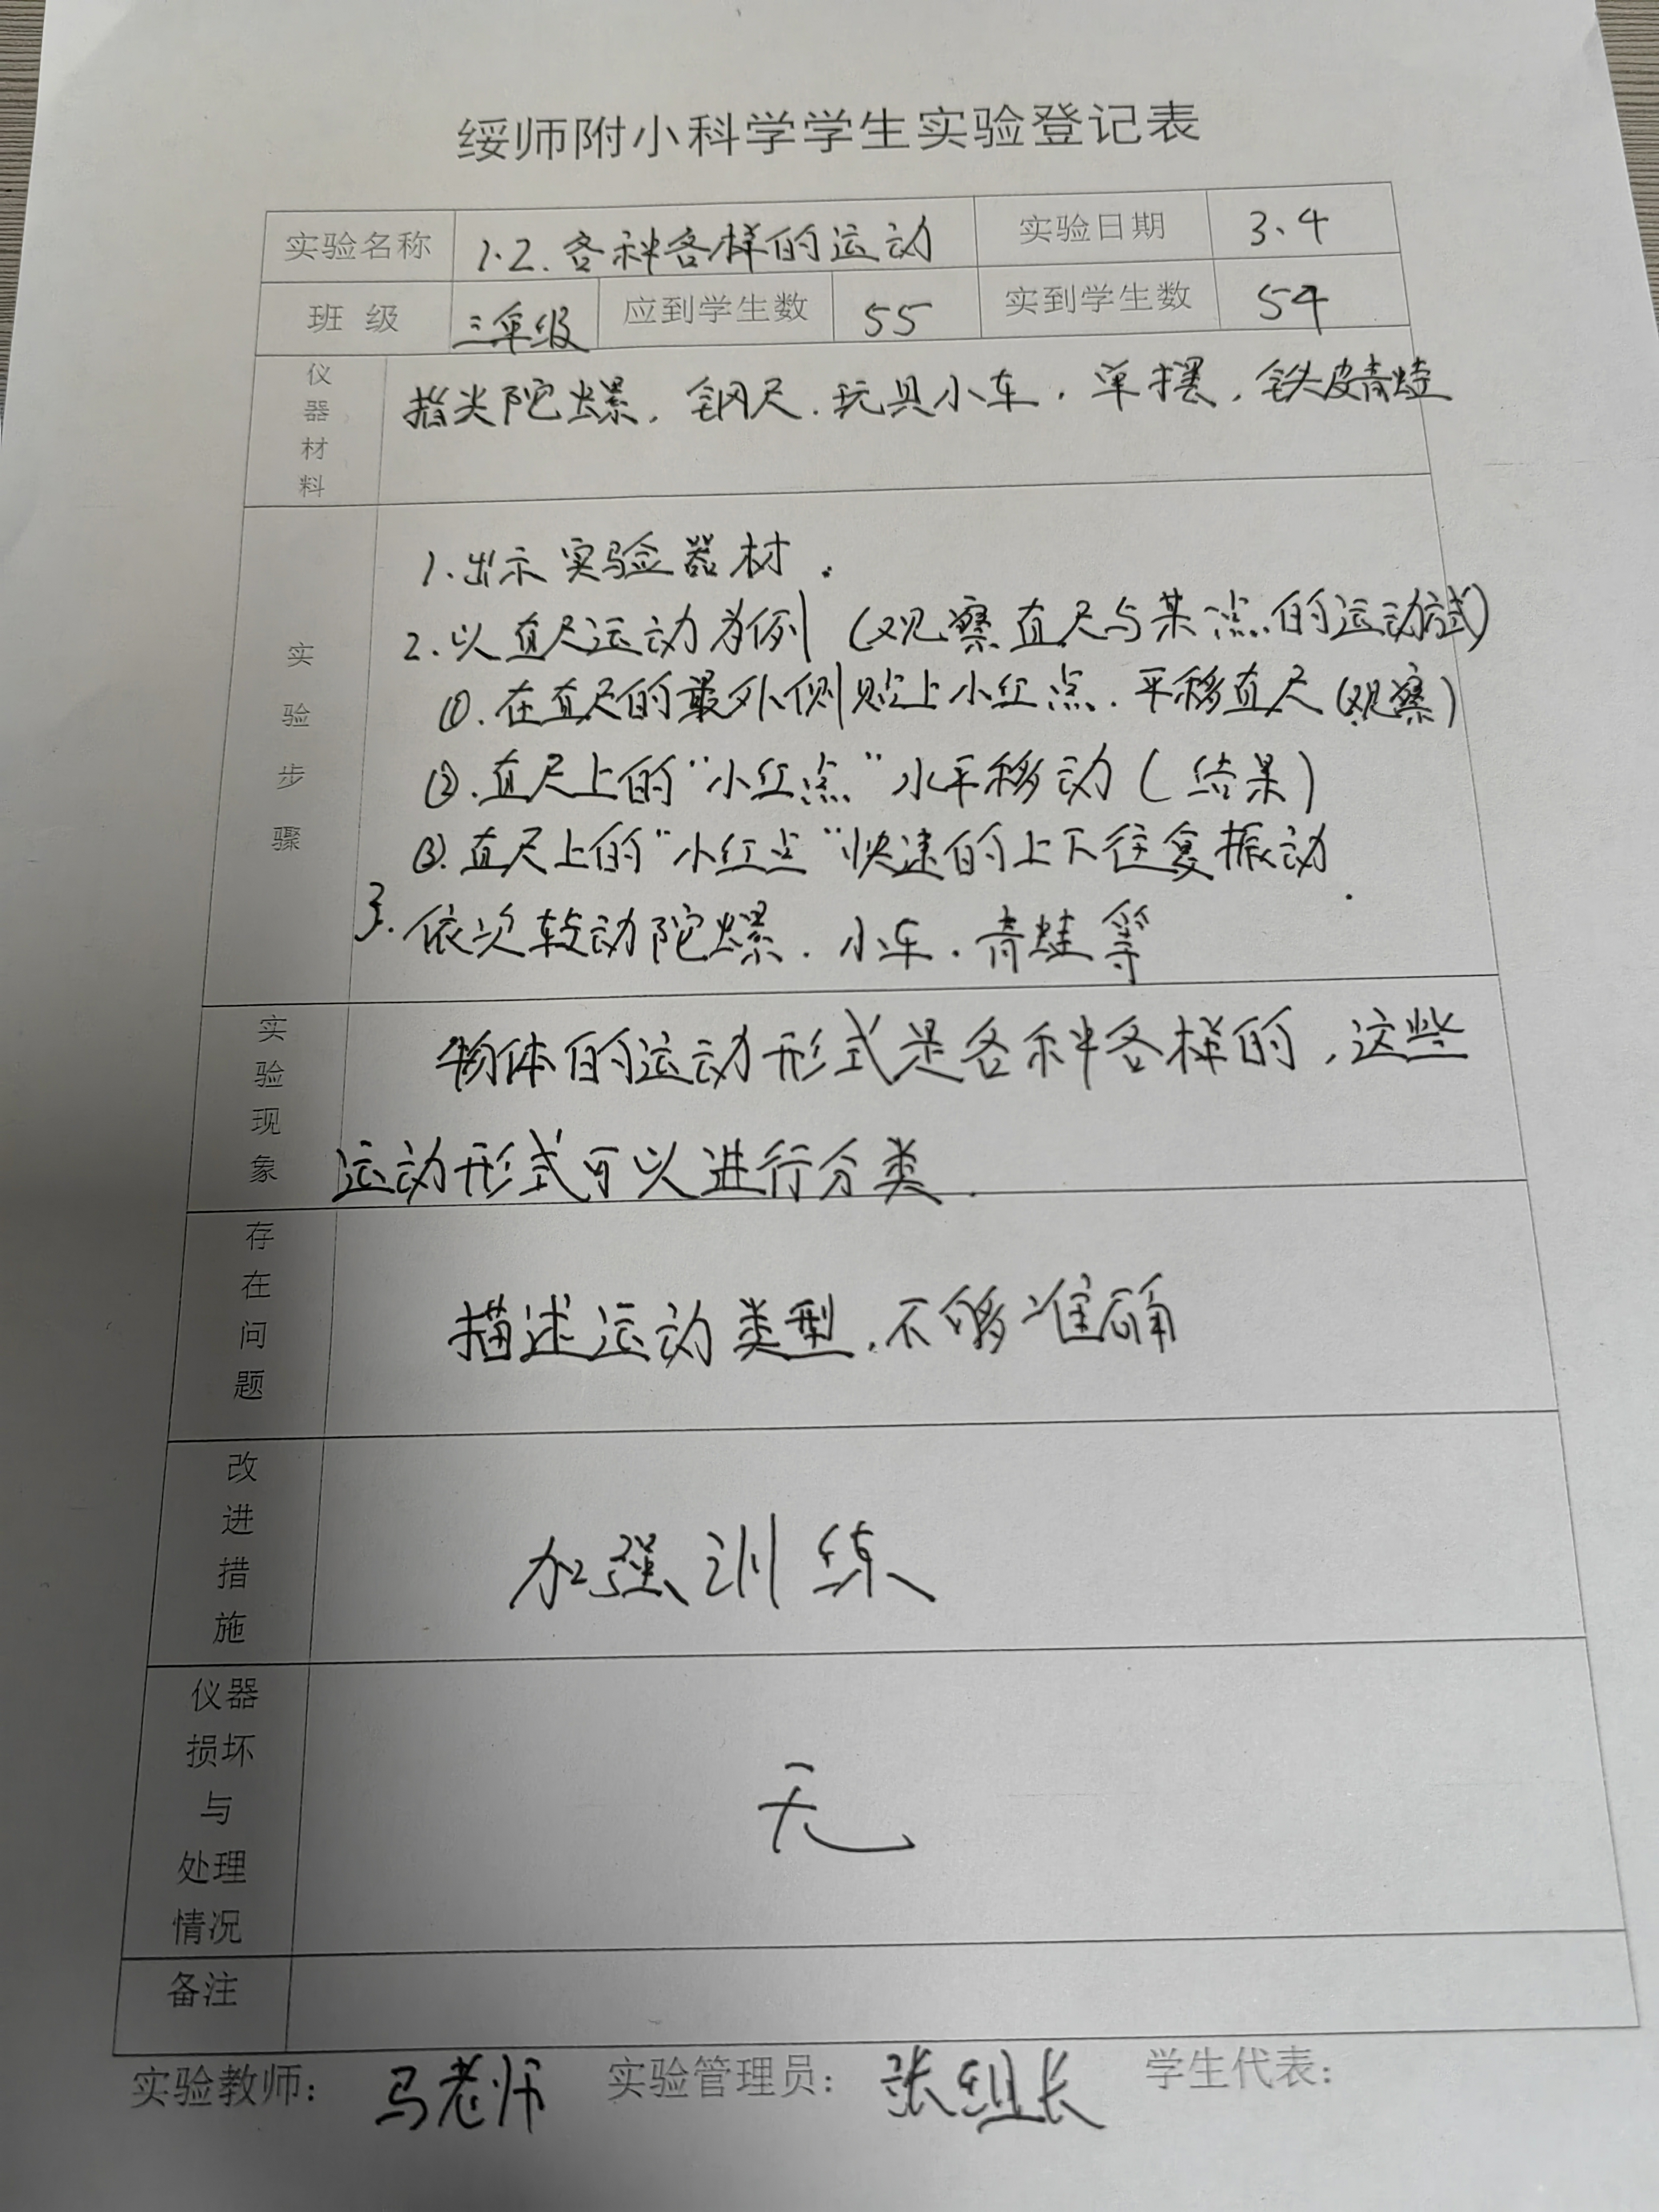 绥师附小科学学生实验登记表
实验名称 1.2.各种各样的运动 实验日期 3.4
班 级 三年级 应到学生数 55 实到学生数 54
仪器材料 指尖陀螺.钢尺.玩具小车.单摆.铁皮青蛙
实验步骤
1.出示实验器材.
2.以直尺运动为例(观察直尺与某点的运动方式)
①.在直尺的最外侧贴上小红点.平移直尺(观察)
②.直尺上的"小红点"水平移动(结果)
③.直尺上的"小红点"快速的上下往复振动.
3.依次转动陀螺.小车.青蛙等
实验现象
物体的运动形式是各种各样的,这些
运动形式可以进行分类.
存在问题
描述运动类型.不够准确
改进措施
加强训练
仪器损坏与处理情况
无
备注
实验教师:马老师 实验管理员:张组长 学生代表: